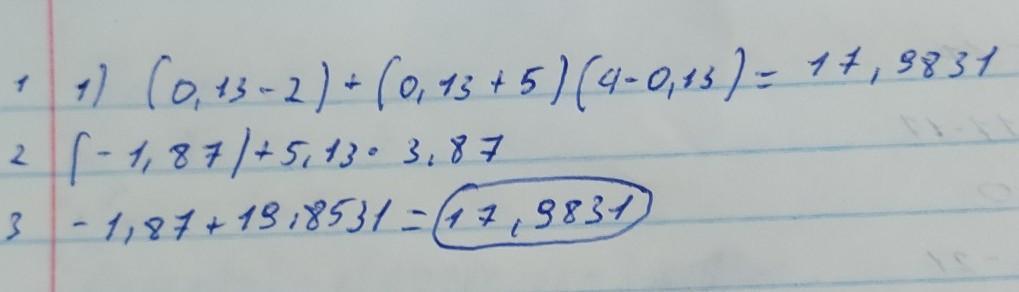 1 1) (0,13-2)+(0,13+5)(4-0,13)= 17,9831
2 (-1,87)+5,13·3,87
3 -1,87+19,8531=17,9831